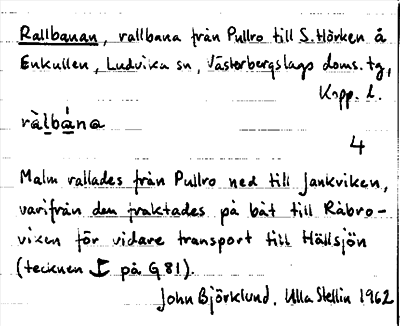 Rallbanan, rallbana från Pullro till S. Hörken å
Enkullen, Ludvika sn, Västerbergslags doms. tg,
Kopp. l.
ràlbána
4
Malm rallades från Pullro ned till Jankviken,
varifrån den fraktades på båt till Råbro-
viken för vidare transport till Hällsjön
(tecknen på G 81).
John Björklund. Ulla Stellin 1962